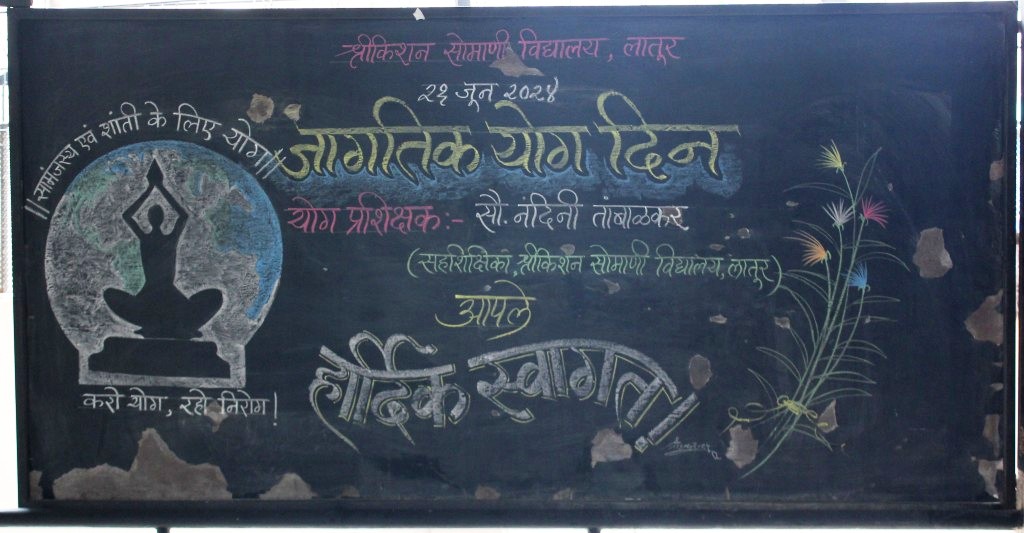 श्रीकिशन सोमाणी विद्यालय, लातूर
२१ जून २०२४
जागतिक योग दिन
॥सामंजस्य एवं शांती के लिए योग॥
योग प्रशिक्षक:- सौ. नंदिनी तांबाळकर
(सहशिक्षिका, श्रीकिशन सोमाणी विद्यालय, लातूर)
आपले
हार्दिक स्वागत!
करो योग, रहो निरोग!